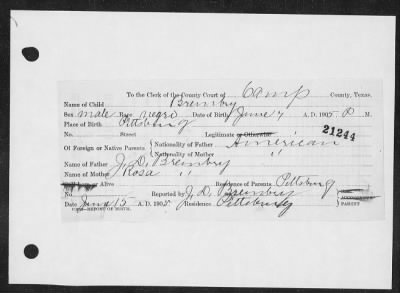 To the Clerk of the County Court of Camp County, Texas.
Name of Child Brembry
Sex male Race negro Date of Birth June 7 A. D. 1905 P. M.
Place of Birth Pittsburg
No. Street Legitimate or Otherwise 21244
Of Foreign or Native Parents { Nationality of Father American
Nationality of Mother "
Name of Father J. D. Brembry
Name of Mother Rosa " Residence of Parents Pittsburg
or Alive
No. Reported by J. D. Brembry
Date June 15 A. D. 1905 Residence Pittsburg PARENT
REPORT OF BIRTH.